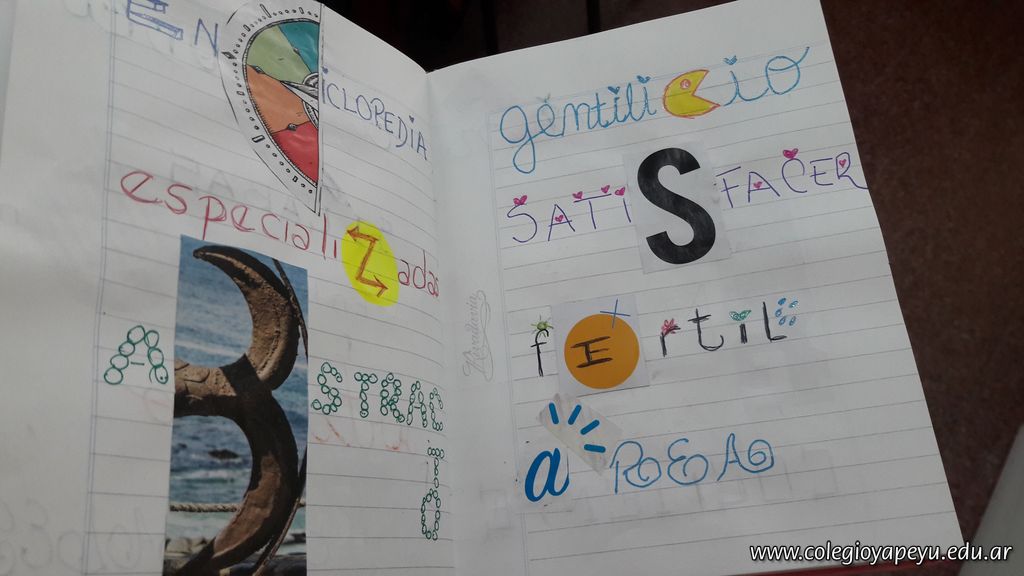 ENCICLOPEDIA
especialiZadas
ABSTRACTO
gentiliCio
SATISFACER
fErtiL
aREA
Rivadavia
www.colegioyapeyu.edu.ar